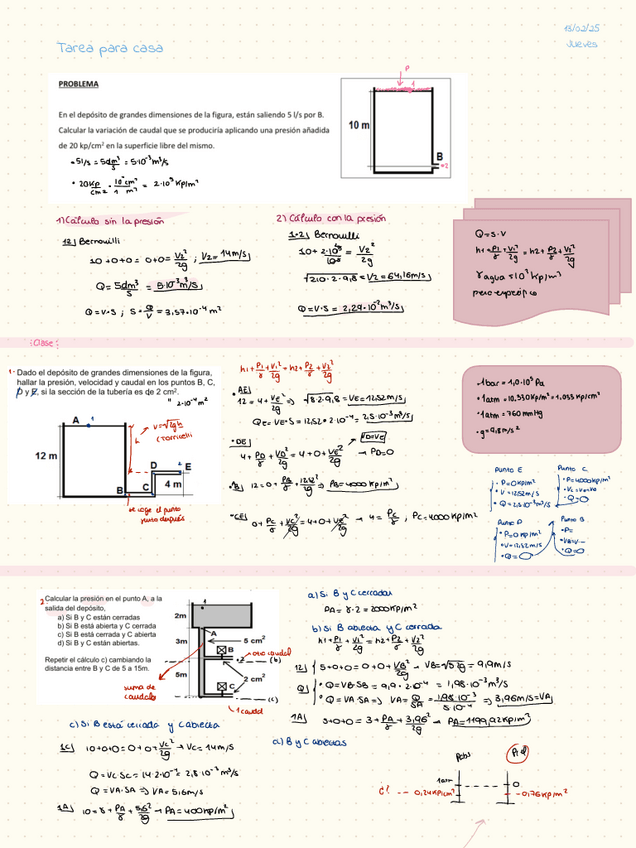 13/02/25
Jueves
Tarea para casa
PROBLEMA
En el depósito de grandes dimensiones de la figura, están saliendo 5 l/s por B.
Calcular la variación de caudal que se produciría aplicando una presión añadida
de 20 kp/cm² en la superficie libre del mismo.
• 5l/s = 5dm³/s = 5·10⁻³m³/s
• 20Kp/cm² · 10⁴cm²/1 m² = 2·10⁵ Kp/m²
P
1
10 m
B
2
1) Cálculo sin la presión
1-2] Bernouilli
10+0+0 = 0+0+ V2²/2g ; V2 = 14m/s
Q = 5dm³/s = 5·10⁻³m³/s
Q = V·S ; S = Q/V = 3,57·10⁻⁴ m²
2) Cálculo con la presión
1-2] Bernouilli
10 + 2·10⁵/10³ = V2²/2g
√210·2·9,8 = V2 = 64,16m/s
Q = V·S = 2,29·10⁻²m³/s
Q = S·V
h1 + P1/γ + V1²/2g = h2 + P2/γ + V2²/2g
γ agua = 10³ Kp/m³
peso específico
Clase:
1· Dado el depósito de grandes dimensiones de la figura,
hallar la presión, velocidad y caudal en los puntos B, C,
D y E, si la sección de la tubería es de 2 cm².
2·10⁻⁴ m²
A
1
V=√2gh
(Torricelli)
12 m
D
E
B
C
4 m
se coge el punto
justo después
h1 + P1/γ + V1²/2g = h2 + P2/γ + V2²/2g
• AE]
12 = 4 + VE²/2g ⇒ √8·2·9,8 = VE = 12,52m/s
QE = VE·S = 12,52·2·10⁻⁴ = 2,5·10⁻³m³/s
• DE]
VD=VE
4 + PD/γ + VD²/2g = 4+0+ VE²/2g → PD=0
12 = 0 + PB/γ + 12,52²/2g ⇒ PB = 4000Kp/m²
• CE] 0 + PC/γ + VC²/2g = 4+0+ VE²/2g → 4 = PC/γ ; PC = 4000 Kp/m²
• 1bar = 1,0·10⁵ Pa
• 1atm = 10.330Kp/m² = 1,033 Kp/cm²
• 1atm = 760 mmHg
• g = 9,8m/s²
Punto E
• P = 0Kp/m²
• V = 12,52m/s
• Q = 2,5·10⁻³m³/s
Punto C
• P = 4000Kp/m²
• Q =
Punto D
• P = 0Kp/m²
• V = 12,52m/s
• Q =
Punto B
• P =
• Q =
2· Calcular la presión en el punto A, a la
salida del depósito,
a) Si B y C están cerradas
b) Si B está abierta y C cerrada
c) Si B está cerrada y C abierta
d) Si B y C están abiertas.
Repetir el cálculo c) cambiando la
distancia entre B y C de 5 a 15m.
suma de
caudales
2m
3m
5m
1
A
5 cm²
B
otro caudal
(b)
2 cm²
C
(c)
1 caudal
a) Si B y C cerradas
PA = γ·2 = 2000Kp/m²
b) Si B abierta y C cerrada
h1 + P1/γ + V1²/2g = h2 + P2/γ + V2²/2g
12] 5+0+0 = 0+0+ VB²/2g → VB = √5·2g = 9,9m/s
Q] • Q = VB·SB = 9,9·2·10⁻⁴ = 1,98·10⁻³m³/s
• Q = VA·SA ⇒ VA = Q/SA = 1,98·10⁻³/5·10⁻⁴ ⇒ 3,96m/s = VA
1A] 5+0+0 = 3 + PA/γ + 3,96²/2g → PA = 1199,92Kp/m²
c) Si B está cerrada y C abierta
1C] 10+0+0 = 0+0+ VC²/2g → VC = 14m/s
Q = VC·SC = 14·2·10⁻⁴ = 2,8·10⁻³ m³/s
Q = VA·SA ⇒ VA = 5,6m/s
1A] 10 = 8 + PA/γ + 5,6²/2g → PA = 400Kp/m²
d) B y C abiertas
Pabs
1atm
0
0,24Kp/cm²
-0,76Kp/m²